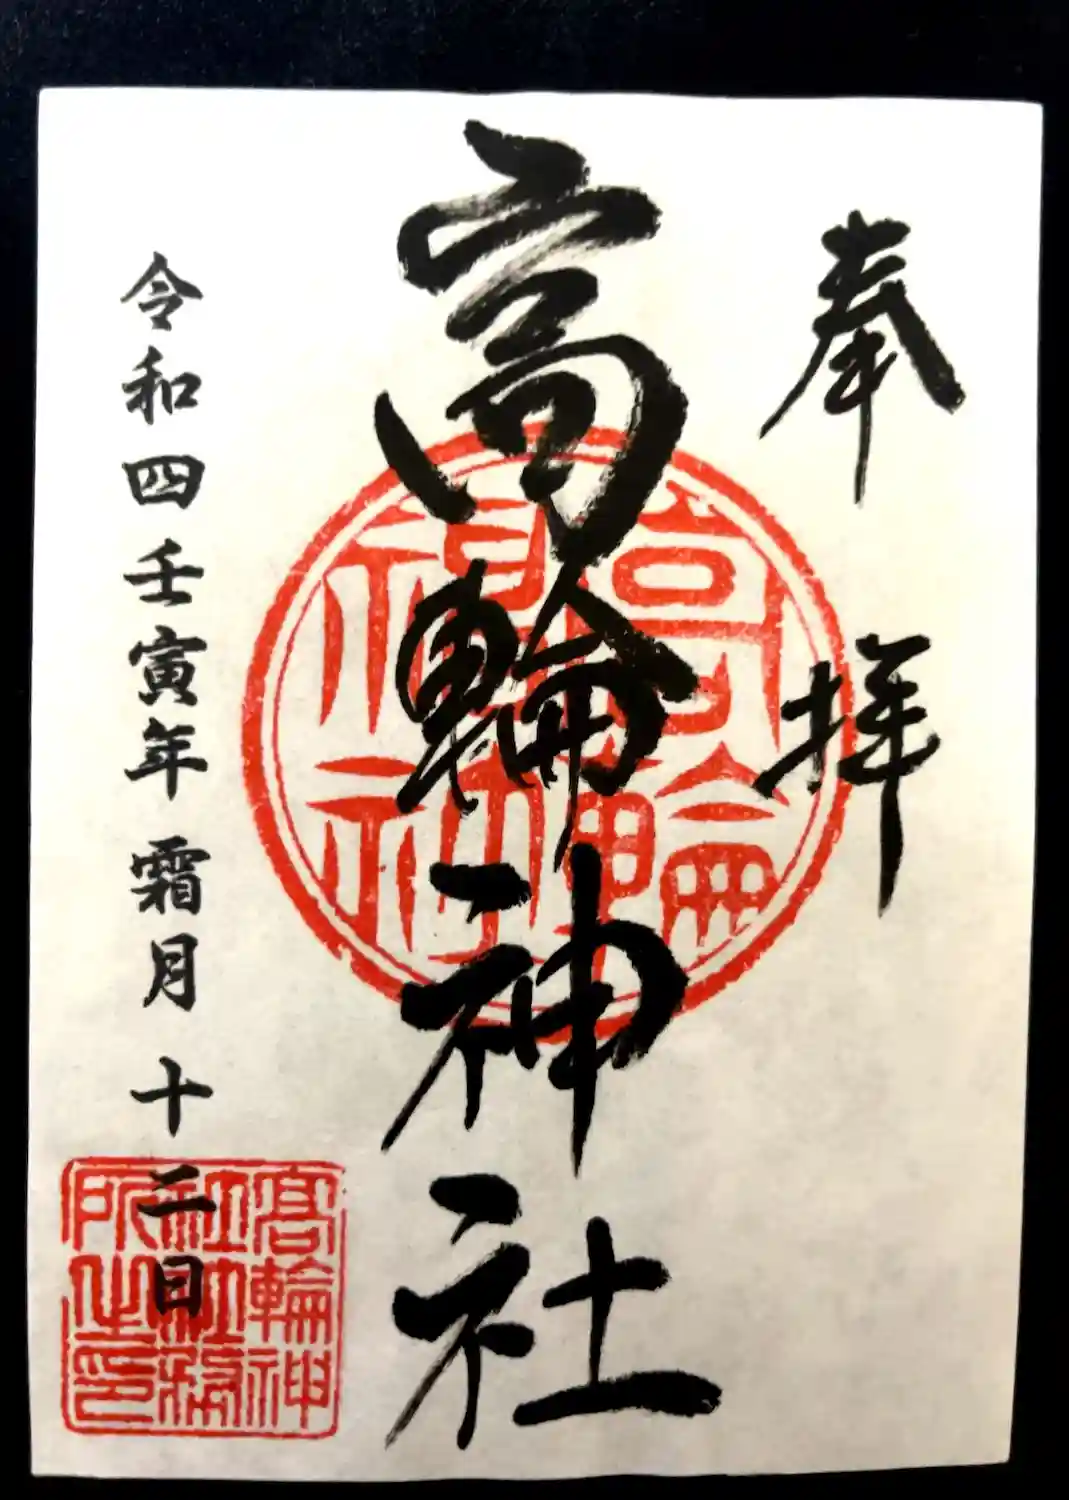 奉拝
高輪神社
高輪神社
令和四壬寅年霜月十二日
高輪神社社務所之印